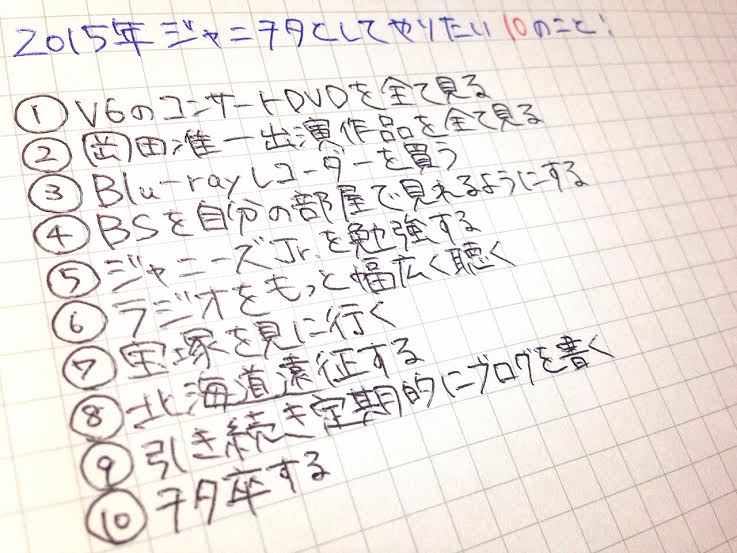 2015年 ジャニヲタとしてやりたい10のこと!
① V6のコンサートDVDを全て見る
② 岡田准一出演作品を全て見る
③ Blu-rayレコーダーを買う
④ BSを自分の部屋で見れるようにする
⑤ ジャニーズJr.を勉強する
⑥ ラジオをもっと幅広く聴く
⑦ 宝塚を見に行く
⑧ 北海道遠征する
⑨ 引き続き定期的にブログを書く
⑩ ヲタ卒する